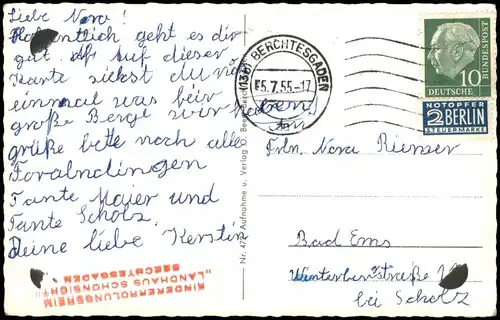 Liebe Nora!
Hoffentlich geht es dir
gut. Auf dieser
Karte siehst du noch
einmal was für
große Berge wir haben.
grüße bitte noch alle
Tante Maier und
Tante Scholz.
Deine liebe Kerstin
KINDERERHOLUNGSHEIM
„LANDHAUS SCHÖNSICHT"
BERCHTESGADEN
Nr. 472 Aufnahme u. Verlag
(13b) BERCHTESGADEN
5.7.55-17
10
DEUTSCHE
BUNDESPOST
NOTOPFER
2 BERLIN
STEUERMARKE
An
Frln. Nora Riemser
Bad Ems
bei Scholz